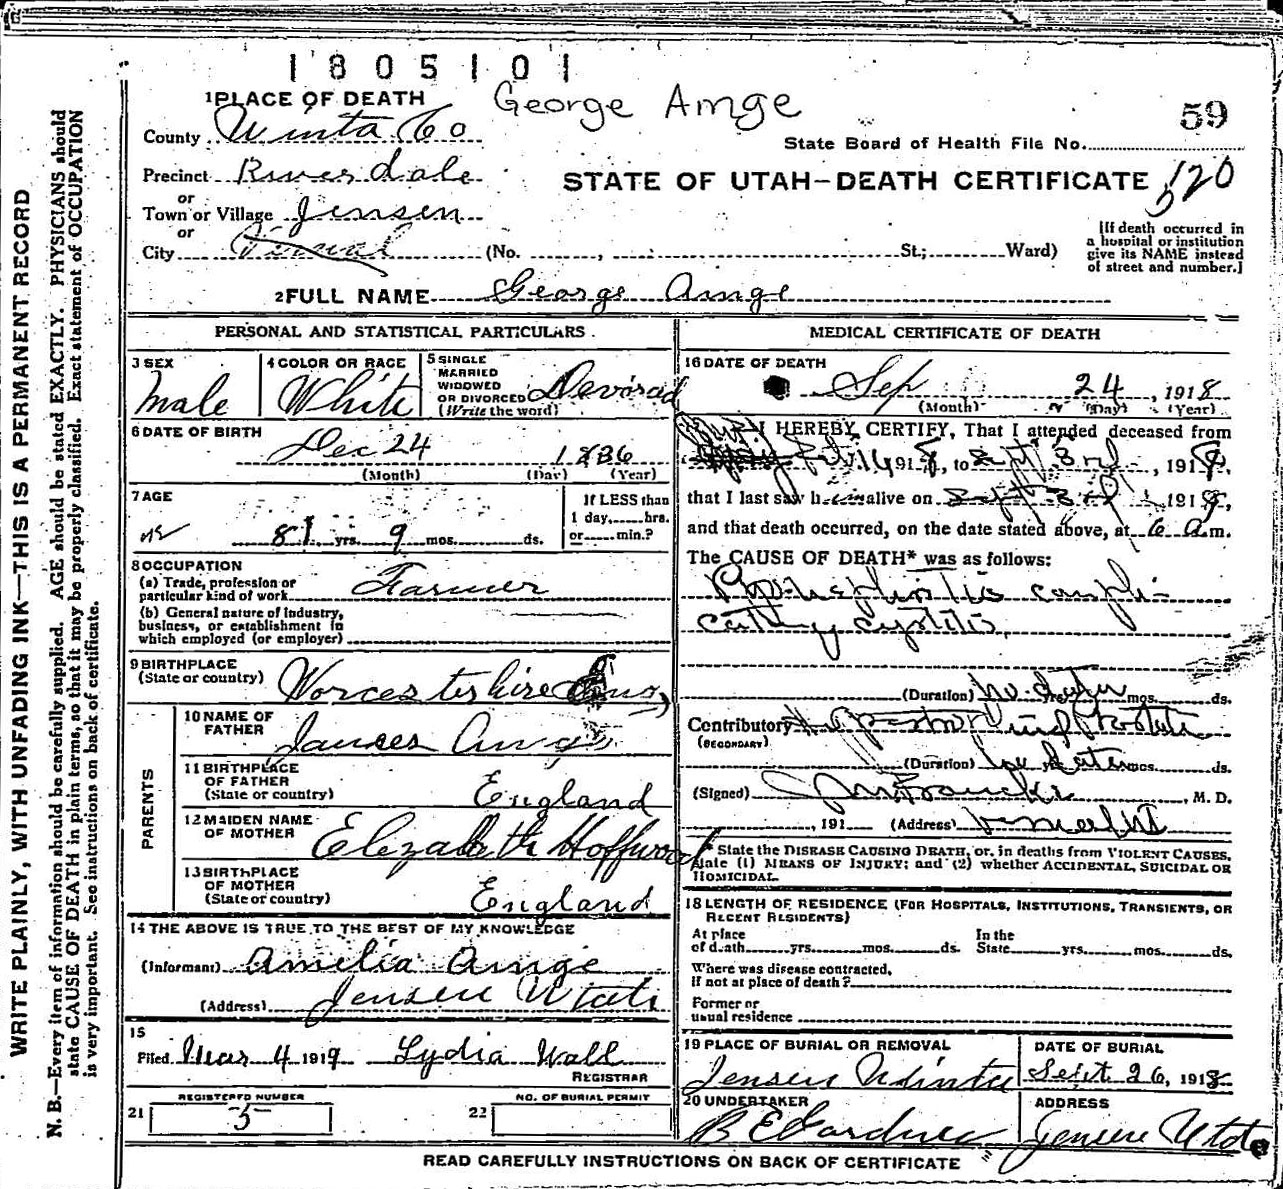 1805101
George Amge
59
1 PLACE OF DEATH
County Uinta Co
State Board of Health File No.
Precinct Riverdale
STATE OF UTAH—DEATH CERTIFICATE 520
or
Town or Village Jensen
or
City Vernal (No. , St.; Ward)
[If death occurred in
a hospital or institution
give its NAME instead
of street and number.]
2 FULL NAME George Amge
PERSONAL AND STATISTICAL PARTICULARS
3 SEX
Male
4 COLOR OR RACE
White
5 SINGLE
MARRIED
WIDOWED
OR DIVORCED
(Write the word)
Devorsad
6 DATE OF BIRTH
Dec 24 1836
(Month) (Day) (Year)
7 AGE
81 yrs. 9 mos. ds.
If LESS than
1 day, hrs.
or min.?
8 OCCUPATION
(a) Trade, profession or
particular kind of work Farmer
(b) General nature of industry,
business, or establishment in
which employed (or employer)
9 BIRTHPLACE
(State or country) Worcestershire
PARENTS
10 NAME OF
FATHER
James Amge
11 BIRTHPLACE
OF FATHER
(State or country) England
12 MAIDEN NAME
OF MOTHER Elizabeth Hoffwood
13 BIRTHPLACE
OF MOTHER
(State or country) England
14 THE ABOVE IS TRUE TO THE BEST OF MY KNOWLEDGE
(Informant) Amelia Amge
(Address) Jensen Utah
15
Filed Mar 4 1919 Lydia Wall
REGISTRAR
REGISTERED NUMBER
21 5
NO. OF BURIAL PERMIT
22
MEDICAL CERTIFICATE OF DEATH
16 DATE OF DEATH
Sep 24, 1918
(Month) (Day) (Year)
I HEREBY CERTIFY, That I attended deceased from
16 1918, to Sept 3rd, 1918,
that I last saw him alive on Sept 3rd, 1918,
and that death occurred, on the date stated above, at 6 a.m.
The CAUSE OF DEATH* was as follows:
compli-
cating cystitis
(Duration) yrs. mos. ds.
Contributory Prostate
(SECONDARY)
(Duration) yrs. mos. ds.
(Signed) , M. D.
, 191 (Address)
* State the DISEASE CAUSING DEATH, or, in deaths from VIOLENT CAUSES,
state (1) MEANS OF INJURY; and (2) whether ACCIDENTAL, SUICIDAL OR
HOMICIDAL.
18 LENGTH OF RESIDENCE (FOR HOSPITALS, INSTITUTIONS, TRANSIENTS, OR
RECENT RESIDENTS)
At place
of death yrs. mos. ds.
In the
State yrs. mos. ds.
Where was disease contracted,
if not at place of death?
Former or
usual residence
19 PLACE OF BURIAL OR REMOVAL
Jensen Uinta
DATE OF BURIAL
Sept. 26, 1918
20 UNDERTAKER
B E Gardner
ADDRESS
Jensen Utah
READ CAREFULLY INSTRUCTIONS ON BACK OF CERTIFICATE
WRITE PLAINLY, WITH UNFADING INK—THIS IS A PERMANENT RECORD
N. B.—Every item of information should be carefully supplied. AGE should be stated EXACTLY. PHYSICIANS should
state CAUSE OF DEATH in plain terms, so that it may be properly classified. Exact statement of OCCUPATION
is very important. See instructions on back of certificate.